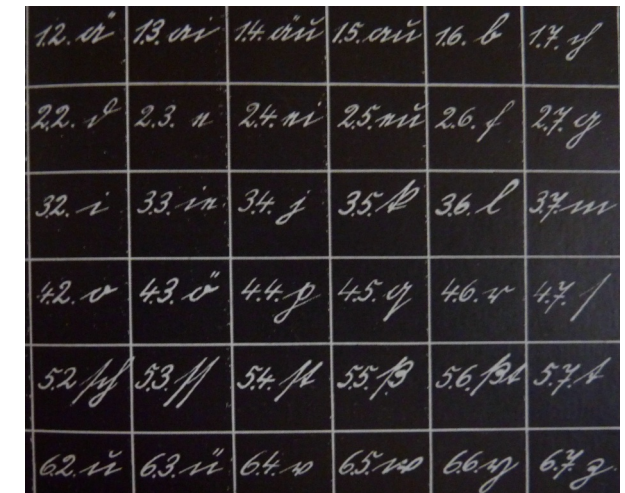 1.2. ä 1.3. ai 1.4. äu 1.5. au 1.6. b 1.7. ch
2.2. d 2.3. e 2.4. ei 2.5. eu 2.6. f 2.7. g
3.2. i 3.3. ie 3.4. j 3.5. k 3.6. l 3.7. m
4.2. o 4.3. ö 4.4. p 4.5. q 4.6. r 4.7. ſ
5.2 ſch 5.3. ſſ 5.4. ſt 5.5. ß 5.6. ßt 5.7. t
6.2. u 6.3. ü 6.4. v 6.5. w 6.6. y 6.7. z